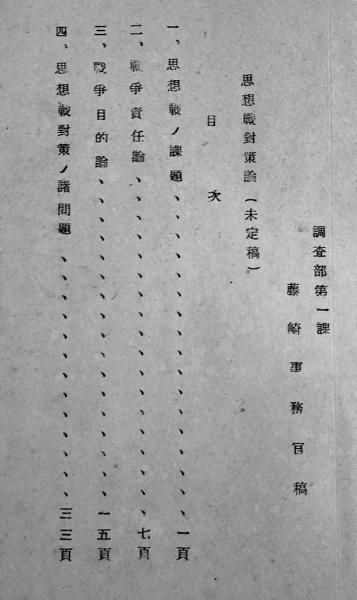 調査部第一課
藤崎事務官稿
思想戰對策論(未定稿)
目次
一、思想戰ノ課題、、、、、、、、、、、、、、、、一頁
二、戰爭責任論、、、、、、、、、、、、、、、、、七頁
三、戰爭目的論、、、、、、、、、、、、、、、、一五頁
四、思想戰對策ノ諸問題、、、、、、、、、、、、三三頁